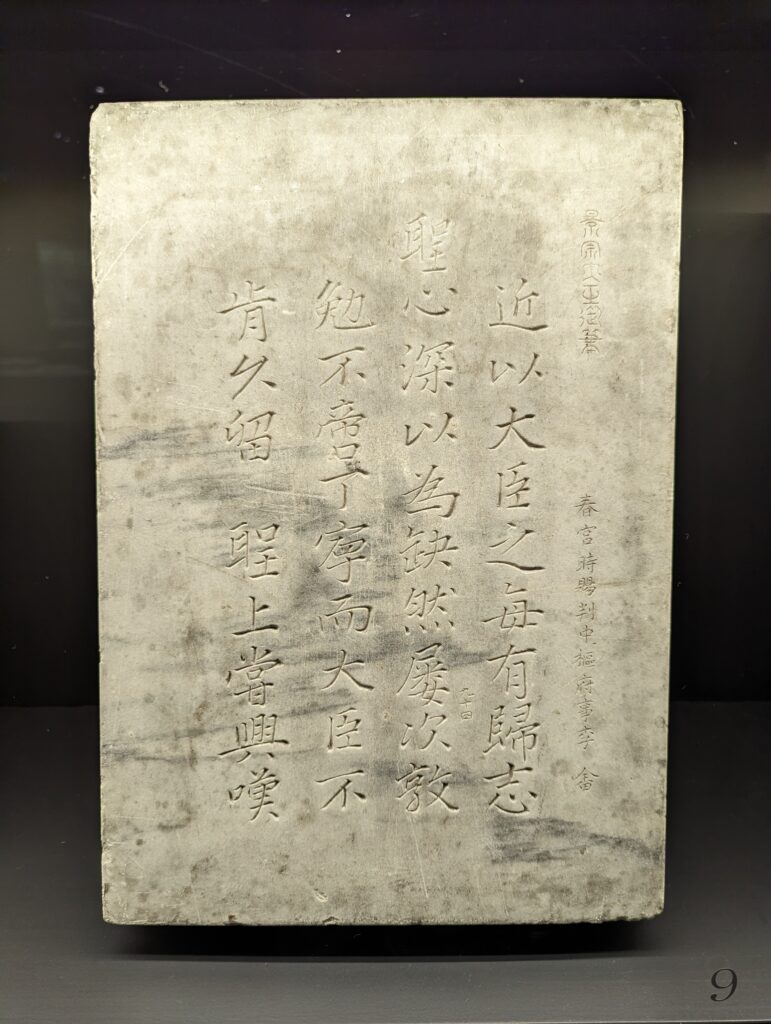 景宗大王御筆
春宮時賜判中樞府事李 畬
近以大臣之每有歸志
聖心深以為缺然屢次敦
勉不啻丁寧而大臣不
肯久留 聖上嘗興嘆
9